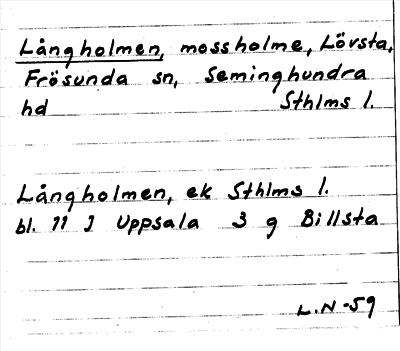 Långholmen, mossholme, Lövsta,
Frösunda sn, Seminghundra
hd Sthlms l.
Långholmen, ek Sthlms l.
bl. 11 I Uppsala 3 g Billsta
L.N-59